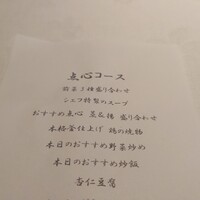 点心コース
前菜3種盛り合わせ
シェフ特製のスープ
おすすめ点心 蒸&揚 盛り合わせ
本格釜仕上げ 鶏の焼物
本日のおすすめ野菜炒め
本日のおすすめ炒飯
杏仁豆腐